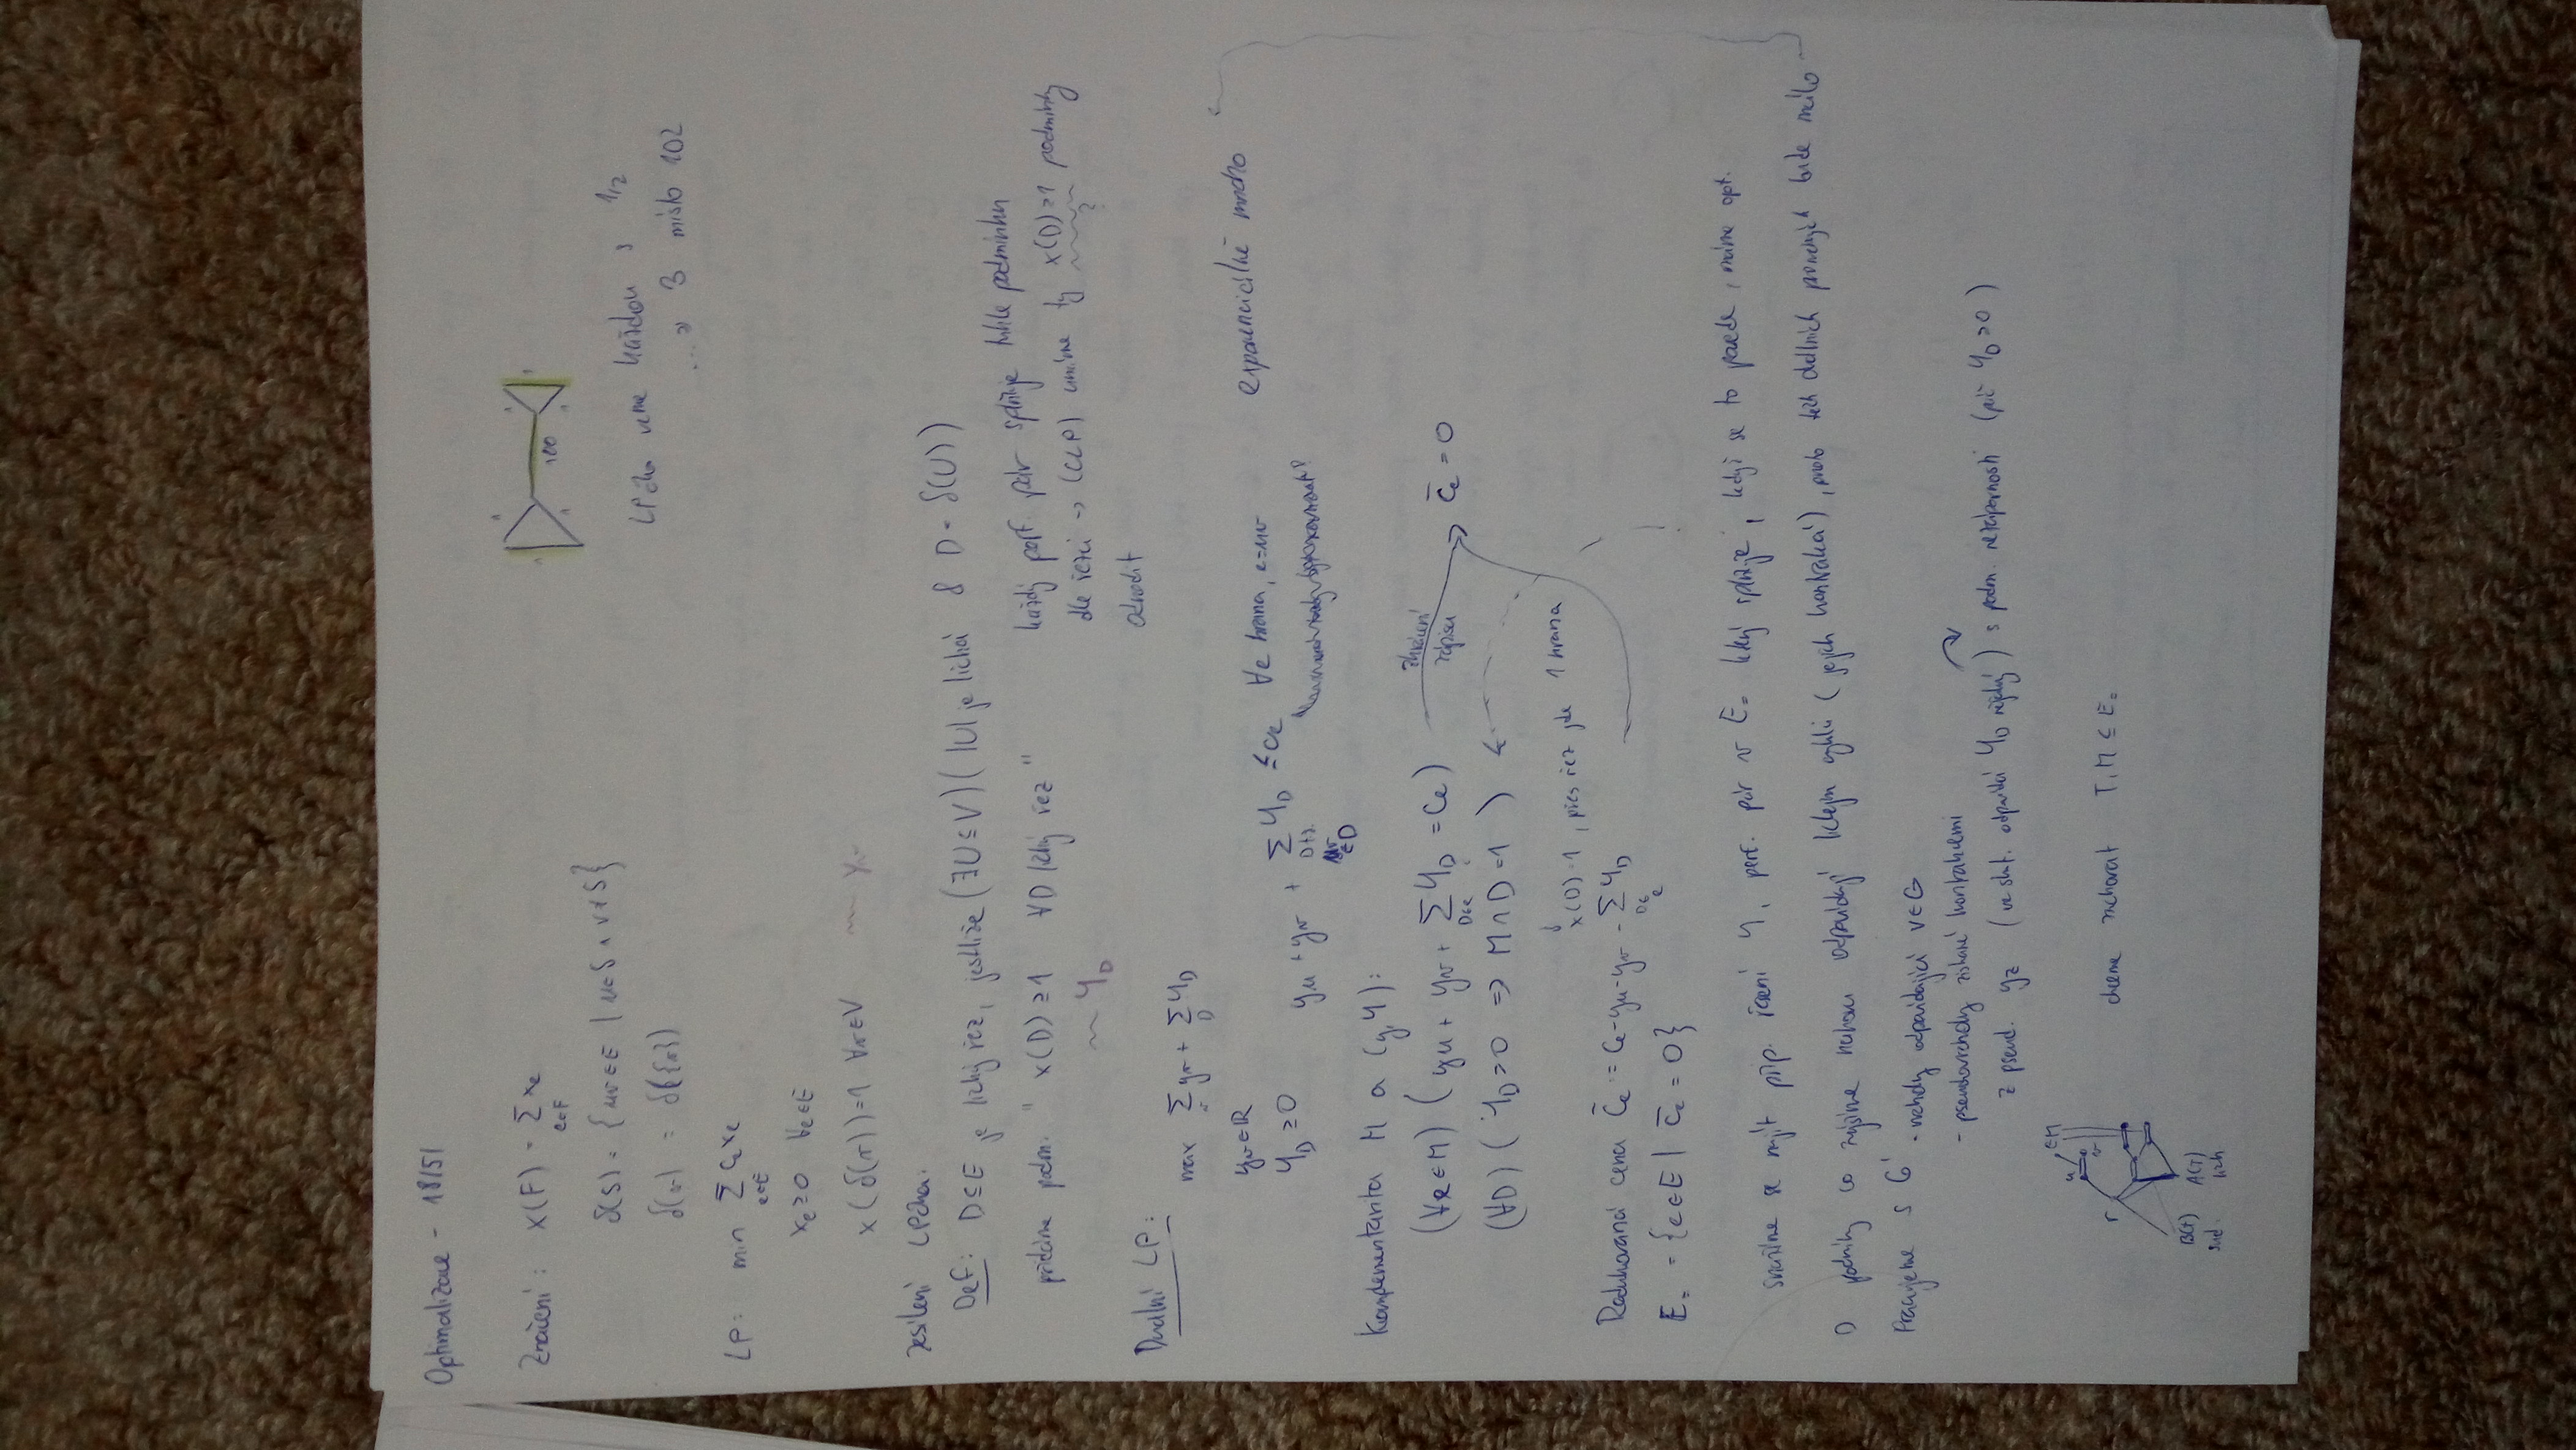 Optimalizace - 18/5/
Značení: x(F) = Σ xe
e∈F
δ(S) = {uv∈E | u∈S ∧ v∉S}
δ(v) = δ({v})
1 1 1 1 1 1
100
LPčko veme každou s 1/2
... → 3 místo 102
LP: min Σ ce xe
e∈E
xe ≥ 0 ∀e∈E
x(δ(v))=1 ∀v∈V ~ yv
zesílení LPčka:
Def: D⊆E je lichý řez, jestliže (∃U⊆V)( |U| je lichá & D = δ(U))
přidáme podm. " x(D) ≥ 1 ∀D lichý řez "
~ YD
každý perf. pár splňuje tuhle podmínku
dle řezů → (CLP) umíme ty x(D)≥1 podmínky
?
odvodit
Duální LP:
max Σ yv + Σ YD
v D
yv∈ℝ
YD ≥ 0
yu + yv + Σ YD ≤ ce ∀e hrana, e=uv
D t.ž.
uv∈D
exponenciálně mnoho
Komplementarita M a (y,Y):
(∀e∈M) ( yu + yv + Σ YD = ce )
D∋e
zkrácení
zápisu
c̄e = 0
(∀D) ( YD>0 ⇒ M∩D=1 )
x(D)=1, přes řez jde 1 hrana
Redukovaná cena c̄e := ce-yu-yv - Σ YD
D∋e
E= = {e∈E | c̄e = 0}
snažíme se najít příp. řešení Y, perf. pár v E= který splňuje, když se to povede, máme opt.
D podmínky co zvýšíme nahoru odpovídají lichým cyklů (jejich kontrakcí), proto těch duálních proměnných bude málo
Pracujeme s G'
- vrcholy odpovídající v∈G
- pseudovrcholy získané kontrakcemi
z pseud. yz (ve skut. odpovídá YD nějaký) s podm. nezápornosti (píč YD>0)
u ∈M
v
r
B(T) A(T)
sud. lich
chceme zachovat T, M ⊆ E=